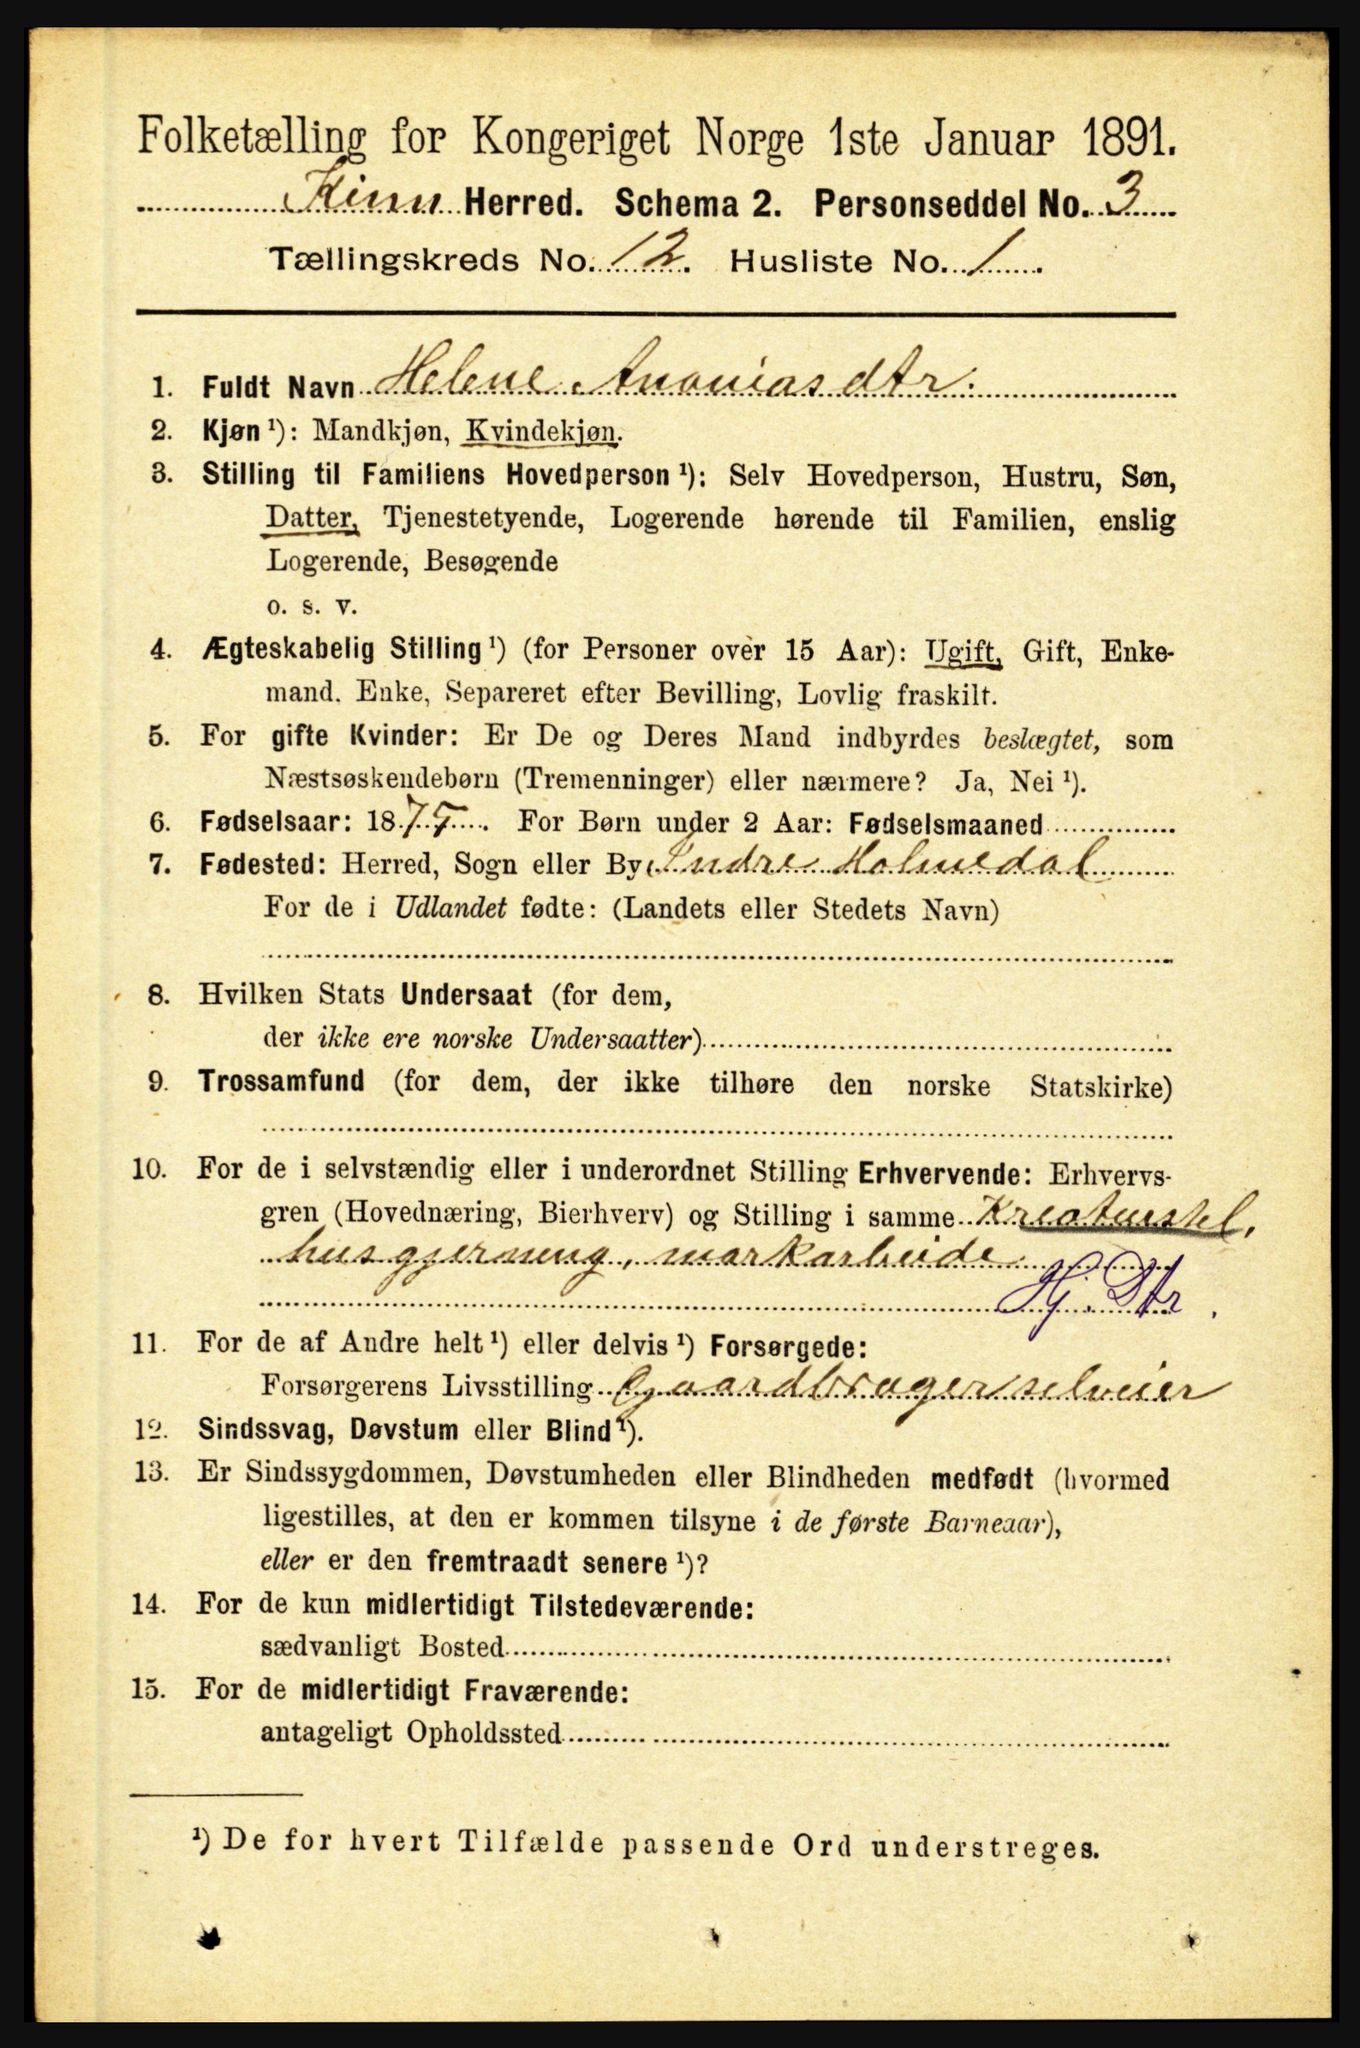 Folketælling for Kongeriget Norge 1ste Januar 1891.
Kinn Herred. Schema 2. Personseddel No. 3
Tællingskreds No. 12. Husliste No. 1
1. Fuldt Navn Helene Ananiasdtr.
2. Kjøn ¹): Mandkjøn, Kvindekjøn.
3. Stilling til Familiens Hovedperson ¹): Selv Hovedperson, Hustru, Søn,
Datter, Tjenestetyende, Logerende hørende til Familien, enslig
Logerende, Besøgende
o. s. v.
4. Ægteskabelig Stilling ¹) (for Personer over 15 Aar): Ugift, Gift, Enke-
mand, Enke, Separeret efter Bevilling, Lovlig fraskilt.
5. For gifte Kvinder: Er De og Deres Mand indbyrdes beslægtet, som
Næstsøskendebørn (Tremenninger) eller nærmere? Ja, Nei ¹).
6. Fødselsaar: 1875. For Børn under 2 Aar: Fødselsmaaned
7. Fødested: Herred, Sogn eller By Indre Holmedal
For de i Udlandet fødte: (Landets eller Stedets Navn)
8. Hvilken Stats Undersaat (for dem,
der ikke ere norske Undersaatter)
9. Trossamfund (for dem, der ikke tilhøre den norske Statskirke)
10. For de i selvstændig eller i underordnet Stilling Erhvervende: Erhvervs-
gren (Hovednæring, Bierhverv) og Stilling i samme Kreaturstel,
husgjerning, markarbeide
Hj. Dtr.
11. For de af Andre helt ¹) eller delvis ¹) Forsørgede:
Forsørgerens Livsstilling Gaardbruger selveier
12. Sindssvag, Døvstum eller Blind ¹).
13. Er Sindssygdommen, Døvstumheden eller Blindheden medfødt (hvormed
ligestilles, at den er kommen tilsyne i de første Barneaar),
eller er den fremtraadt senere ¹)?
14. For de kun midlertidigt Tilstedeværende:
sædvanligt Bosted
15. For de midlertidigt Fraværende:
antageligt Opholdssted
¹) De for hvert Tilfælde passende Ord understreges.